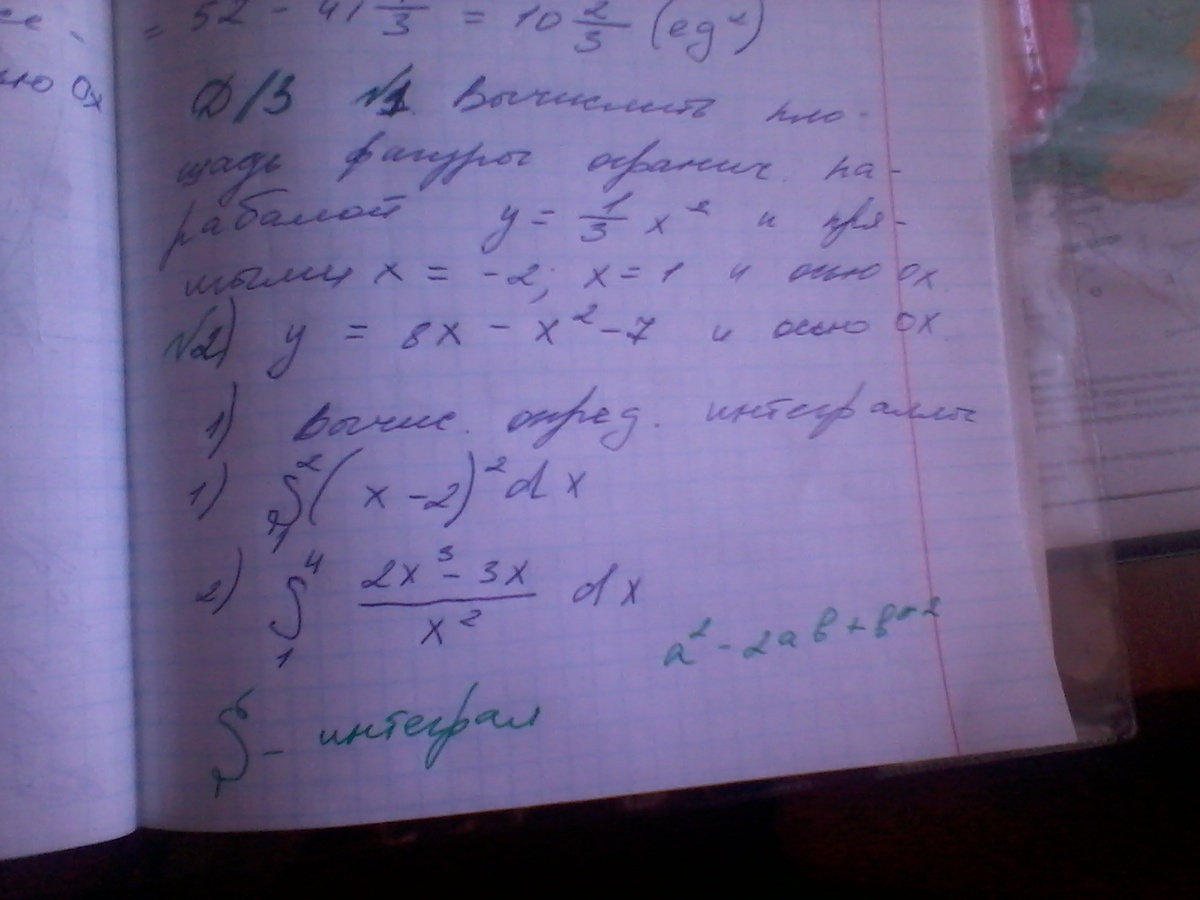 = 52 - 41 1/3 = 10 2/3 (ед²)
ью Ox
Д/З №1. Вычислить пло-
щадь фигуры огранич. па-
раболой y = 1/3 x² и пря-
мыми x = -2; x = 1 и осью Ox
№2) y = 8x - x² - 7 и осью OX
1) Вычис. опред. интегралы
1) ∫₁² (x - 2)² dx
2) ∫₁⁴ (2x³ - 3x)/x² dx
a² - 2ab + b²
∫ - интеграл